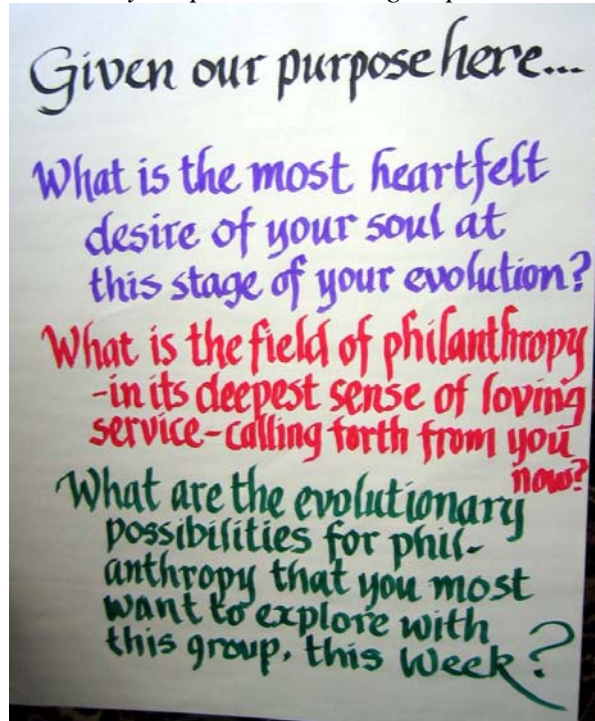 Given our purpose here...
What is the most heartfelt
desire of your soul at
this stage of your evolution?
What is the field of philanthropy
-in its deepest sense of loving
service-calling forth from you
now?
What are the evolutionary
possibilities for phil-
anthropy that you most
want to explore with
this group, this week?